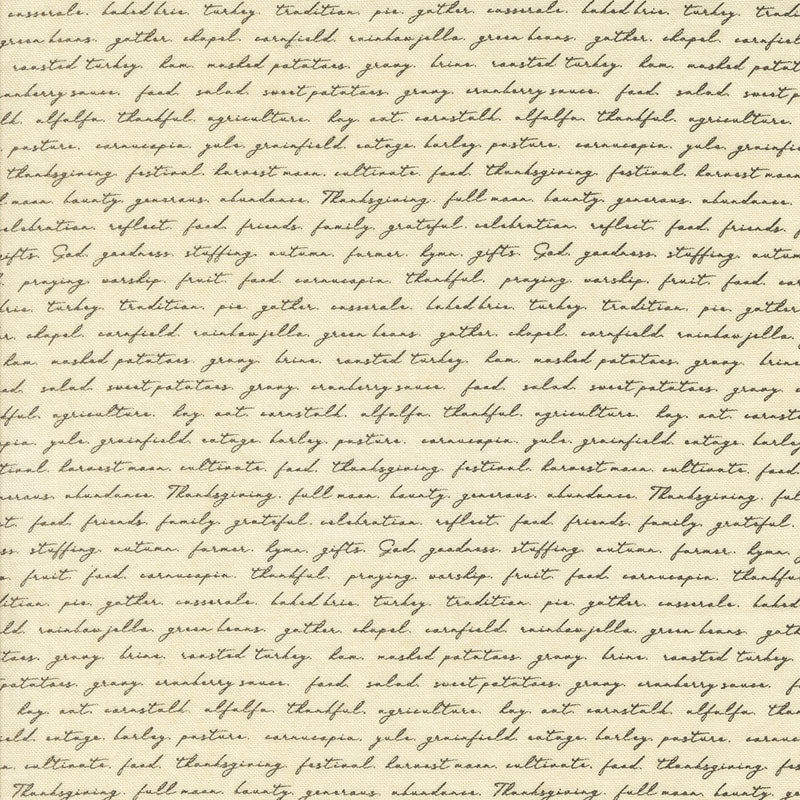 casserale. baked brie. turkey. tradition. pie. gather. casserale. baked brie. turkey. tradi
green beans. gather. chapel. cornfield. rainbow jello. green beans. gather. chapel. cornfiel
roasted turkey. ham. mashed potatoes. gravy. brine. roasted turkey. ham. mashed potat
anberry sauce. food. salad. sweet potatoes. gravy. cranberry sauce. food. salad. sweet p
lk. alfalfa. thankful. agriculture. hay. oat. cornstalk. alfalfa. thankful. agriculture.
pasture. cornucopia. yule. grainfield. cottage. barley. pasture. cornucopia. yule. grainfie
thanksgiving. festival. harvest moon. cultivate. food. thanksgiving. festival. harvest moon
l moon. bounty. generous. abundance. Thanksgiving. full moon. bounty. generous. abundance.
elebration. reflect. food. friends. family. grateful. celebration. reflect. food. friends. f
gifts. God. goodness. stuffing. autumn. farmer. hymn. gifts. God. goodness. stuffing. autum
praying. worship. fruit. food. cornucopia. thankful. praying. worship. fruit. food. cor
brie. turkey. tradition. pie. gather. casserale. baked brie. turkey. tradition. pie. gather
r. chapel. cornfield. rainbow jello. green beans. gather. chapel. cornfield. rainbow jello.
ham. mashed potatoes. gravy. brine. roasted turkey. ham. mashed potatoes. gravy. brine
od. salad. sweet potatoes. gravy. cranberry sauce. food. salad. sweet potatoes. gravy. c
kful. agriculture. hay. oat. cornstalk. alfalfa. thankful. agriculture. hay. oat. cornsta
pia. yule. grainfield. cottage. barley. pasture. cornucopia. yule. grainfield. cottage. barley
tival. harvest moon. cultivate. food. thanksgiving. festival. harvest moon. cultivate. food.
nerous. abundance. Thanksgiving. full moon. bounty. generous. abundance. Thanksgiving. ful
t. food. friends. family. grateful. celebration. reflect. food. friends. family. grateful.
ss. stuffing. autumn. farmer. hymn. gifts. God. goodness. stuffing. autumn. farmer. hymn. g
fruit. food. cornucopia. thankful. praying. worship. fruit. food. cornucopia. thankfu
dition. pie. gather. casserale. baked brie. turkey. tradition. pie. gather. casserale. baked
ld. rainbow jello. green beans. gather. chapel. cornfield. rainbow jello. green beans. gath
toes. gravy. brine. roasted turkey. ham. mashed potatoes. gravy. brine. roasted turkey.
potatoes. gravy. cranberry sauce. food. salad. sweet potatoes. gravy. cranberry sauce. f
hay. oat. cornstalk. alfalfa. thankful. agriculture. hay. oat. cornstalk. alfalfa. than
eld. cottage. barley. pasture. cornucopia. yule. grainfield. cottage. barley. pasture. cornuc
n. cultivate. food. thanksgiving. festival. harvest moon. cultivate. food. thanksgiving. fes
Thanksgiving. full moon. bounty. generous. abundance. Thanksgiving. full moon. bounty. ge